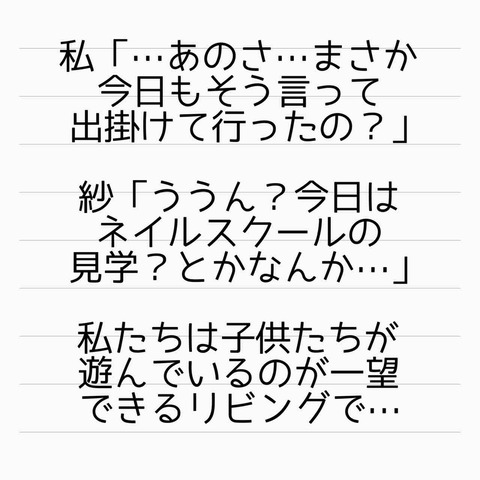 私「…あのさ…まさか
今日もそう言って
出掛けて行ったの？」
紗「ううん？今日は
ネイルスクールの
見学？とかなんか…」
私たちは子供たちが
遊んでいるのが一望
できるリビングで…